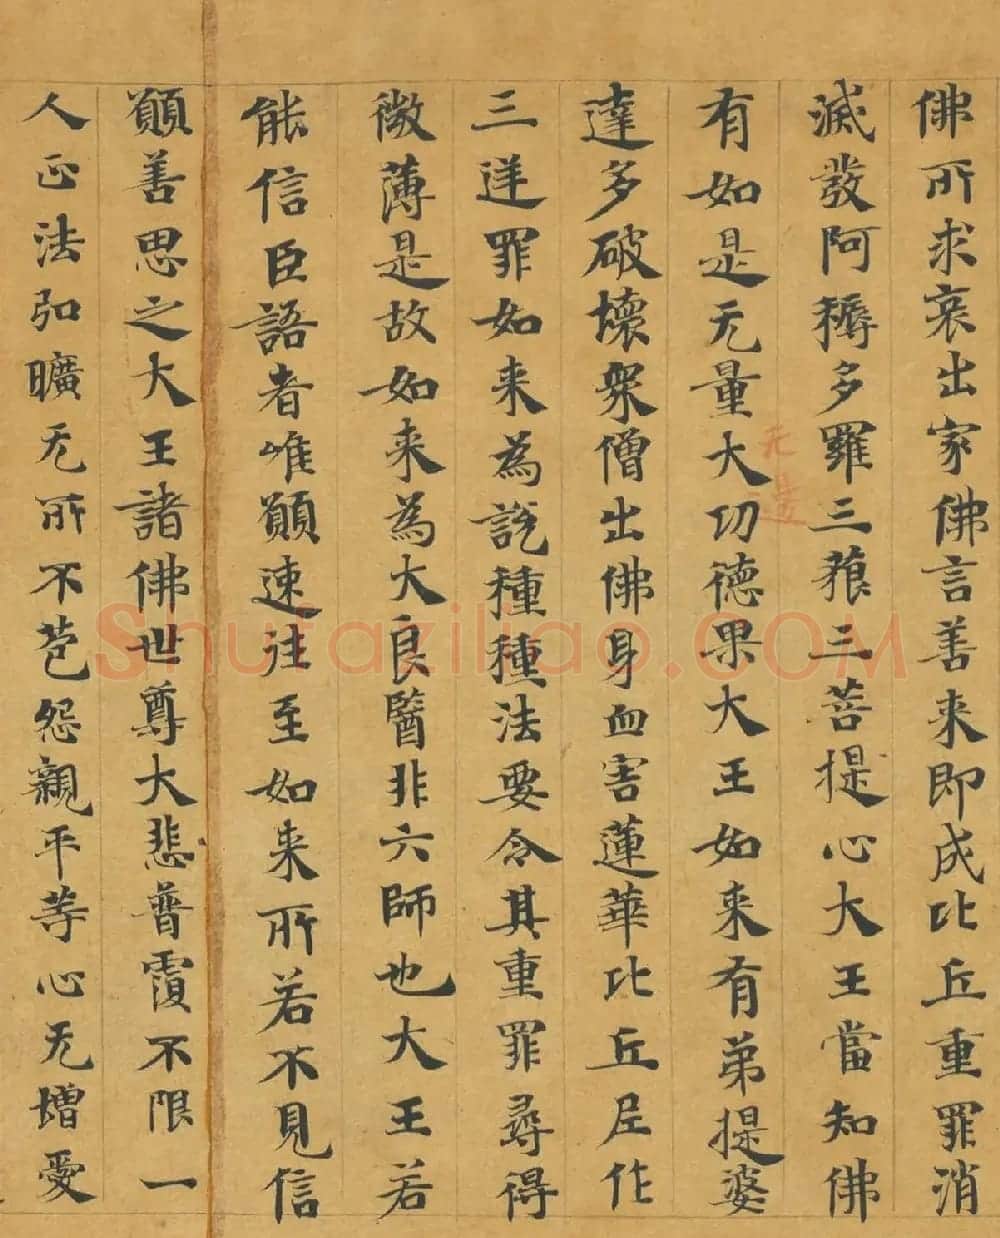 佛所求哀出家佛言善来即成比丘重罪消
滅發阿耨多羅三藐三菩提心大王當知佛
有如是无量大功德果大王如来有弟提婆
无
達多破壞眾僧出佛身血害蓮華比丘尼作
三逆罪如来為說種種法要令其重罪尋得
微薄是故如来為大良醫非六師也大王若
能信臣語者唯願速往至如来所若不見信
願善思之大王諸佛世尊大悲普覆不限一
人正法弘曠无所不苞怨親平等心无增愛
Shufaziliao.COM